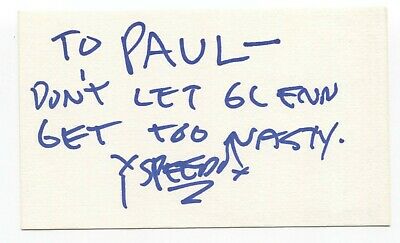 TO PAUL—
DON'T LET GLENN
GET TOO NASTY.
xSPEEDOx